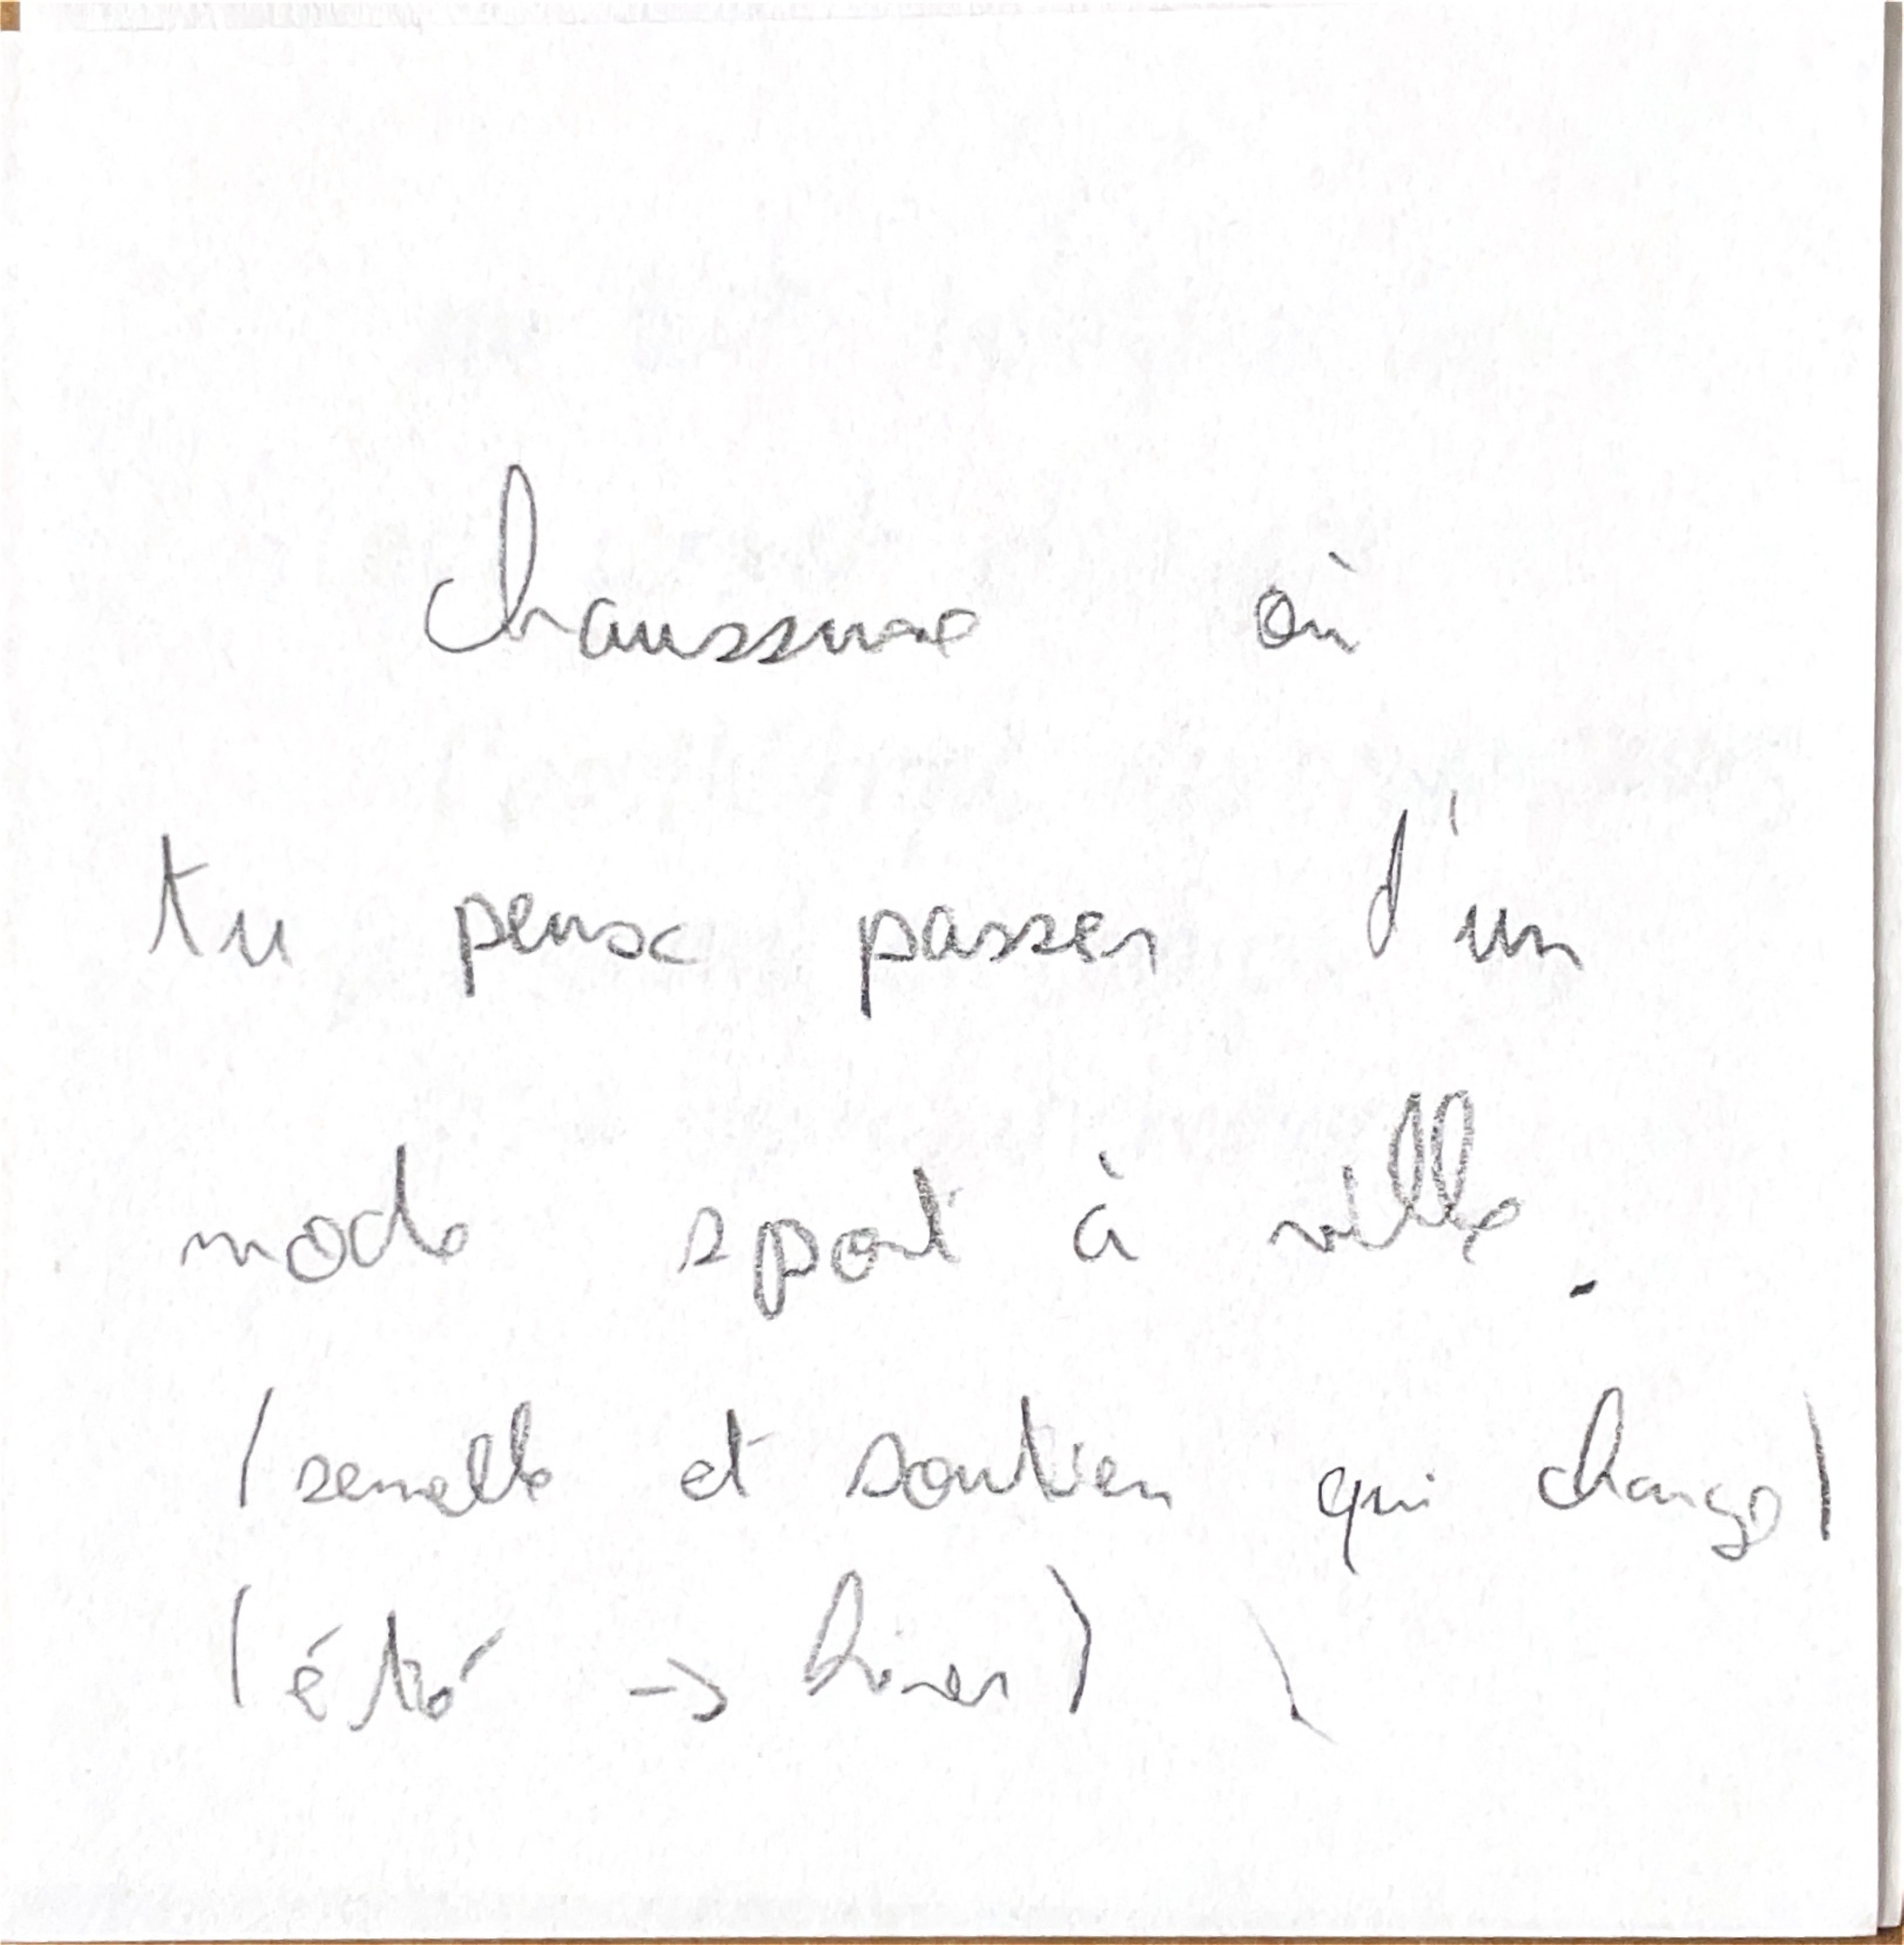 Chaussure où
tu peux passer d'un
mode sport à ville.
(semelle et soutien qui change)
(été -> hiver)